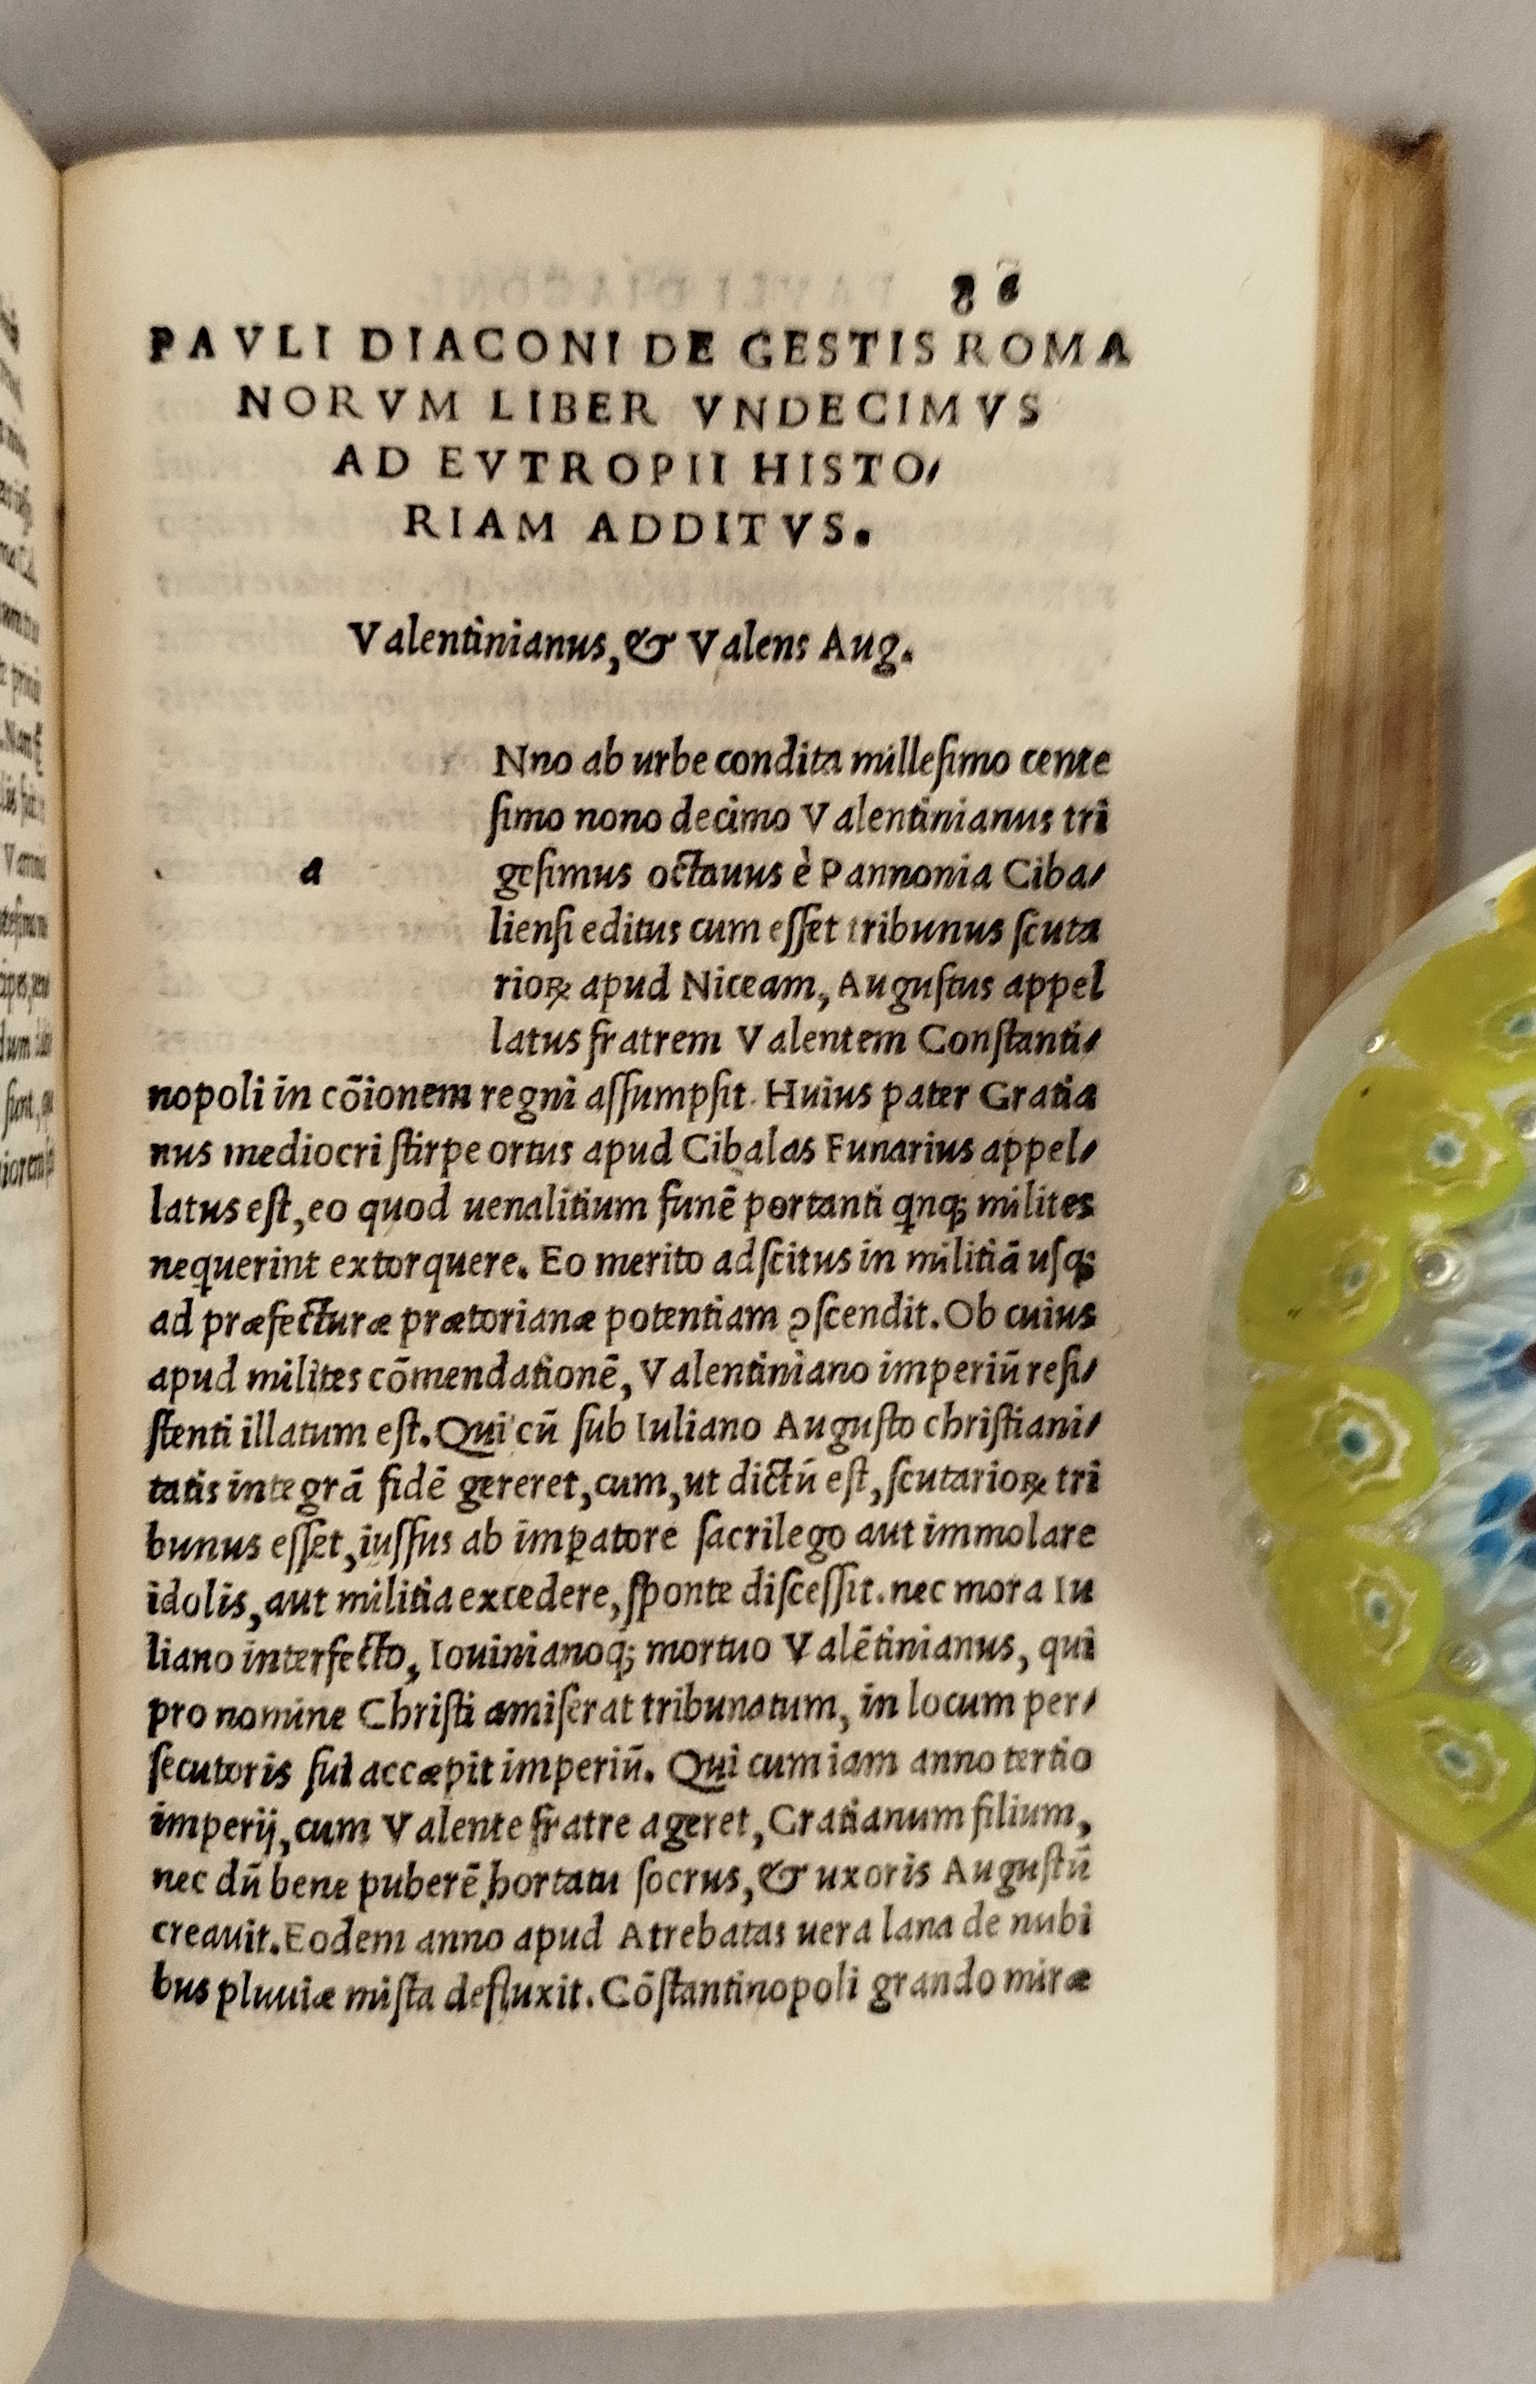 86
PAVLI DIACONI DE GESTIS ROMA
NORVM LIBER VNDECIMVS
AD EVTROPII HISTO/
RIAM ADDITVS.
Valentinianus, & Valens Aug.
a
Nno ab urbe condita millesimo cente
simo nono decimo Valentinianus tri
gesimus octauus è Pannonia Ciba/
liensi editus cum esset tribunus scuta
rioꝝ apud Niceam, Augustus appel
latus fratrem Valentem Constanti/
nopoli in cōionem regni assumpsit. Huius pater Gratia
nus mediocri stirpe ortus apud Cibalas Funarius appel/
latus est, eo quod uenalitium funē portanti qnq; milites
nequerint extorquere. Eo merito adscitus in militiā usq;
ad præfecturæ prætorianæ potentiam ɔscendit. Ob cuius
apud milites cōmendationē, Valentiniano imperiū resi/
stenti illatum est. Qui cū sub Iuliano Augusto christiani/
tatis integrā fidē gereret, cum, ut dictū est, scutarioꝝ tri
bunus esset, iussus ab imꝑatore sacrilego aut immolare
idolis, aut militia excedere, sponte discessit. nec mora Iu
liano interfecto, Iouinianoq; mortuo Valētinianus, qui
pro nomine Christi amiserat tribunatum, in locum per/
secutoris sui accæpit imperiū. Qui cum iam anno tertio
imperij, cum Valente fratre ageret, Gratianum filium,
nec dū bene puberē hortatu socrus, & uxoris Augustū
creauit. Eodem anno apud Atrebatas uera lana de nubi
bus pluuiæ mista defluxit. Cōstantinopoli grando miræ